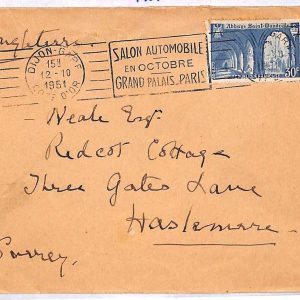 Angleterre
DIJON-GARE
15H
12-10
1951
COTE D'OR
SALON AUTOMOBILE
EN OCTOBRE
GRAND PALAIS-PARIS
Abbaye Saint-Wandrille
30F
Neale Esq.
Redcot Cottage
Three Gates Lane
Haslemere
Surrey.